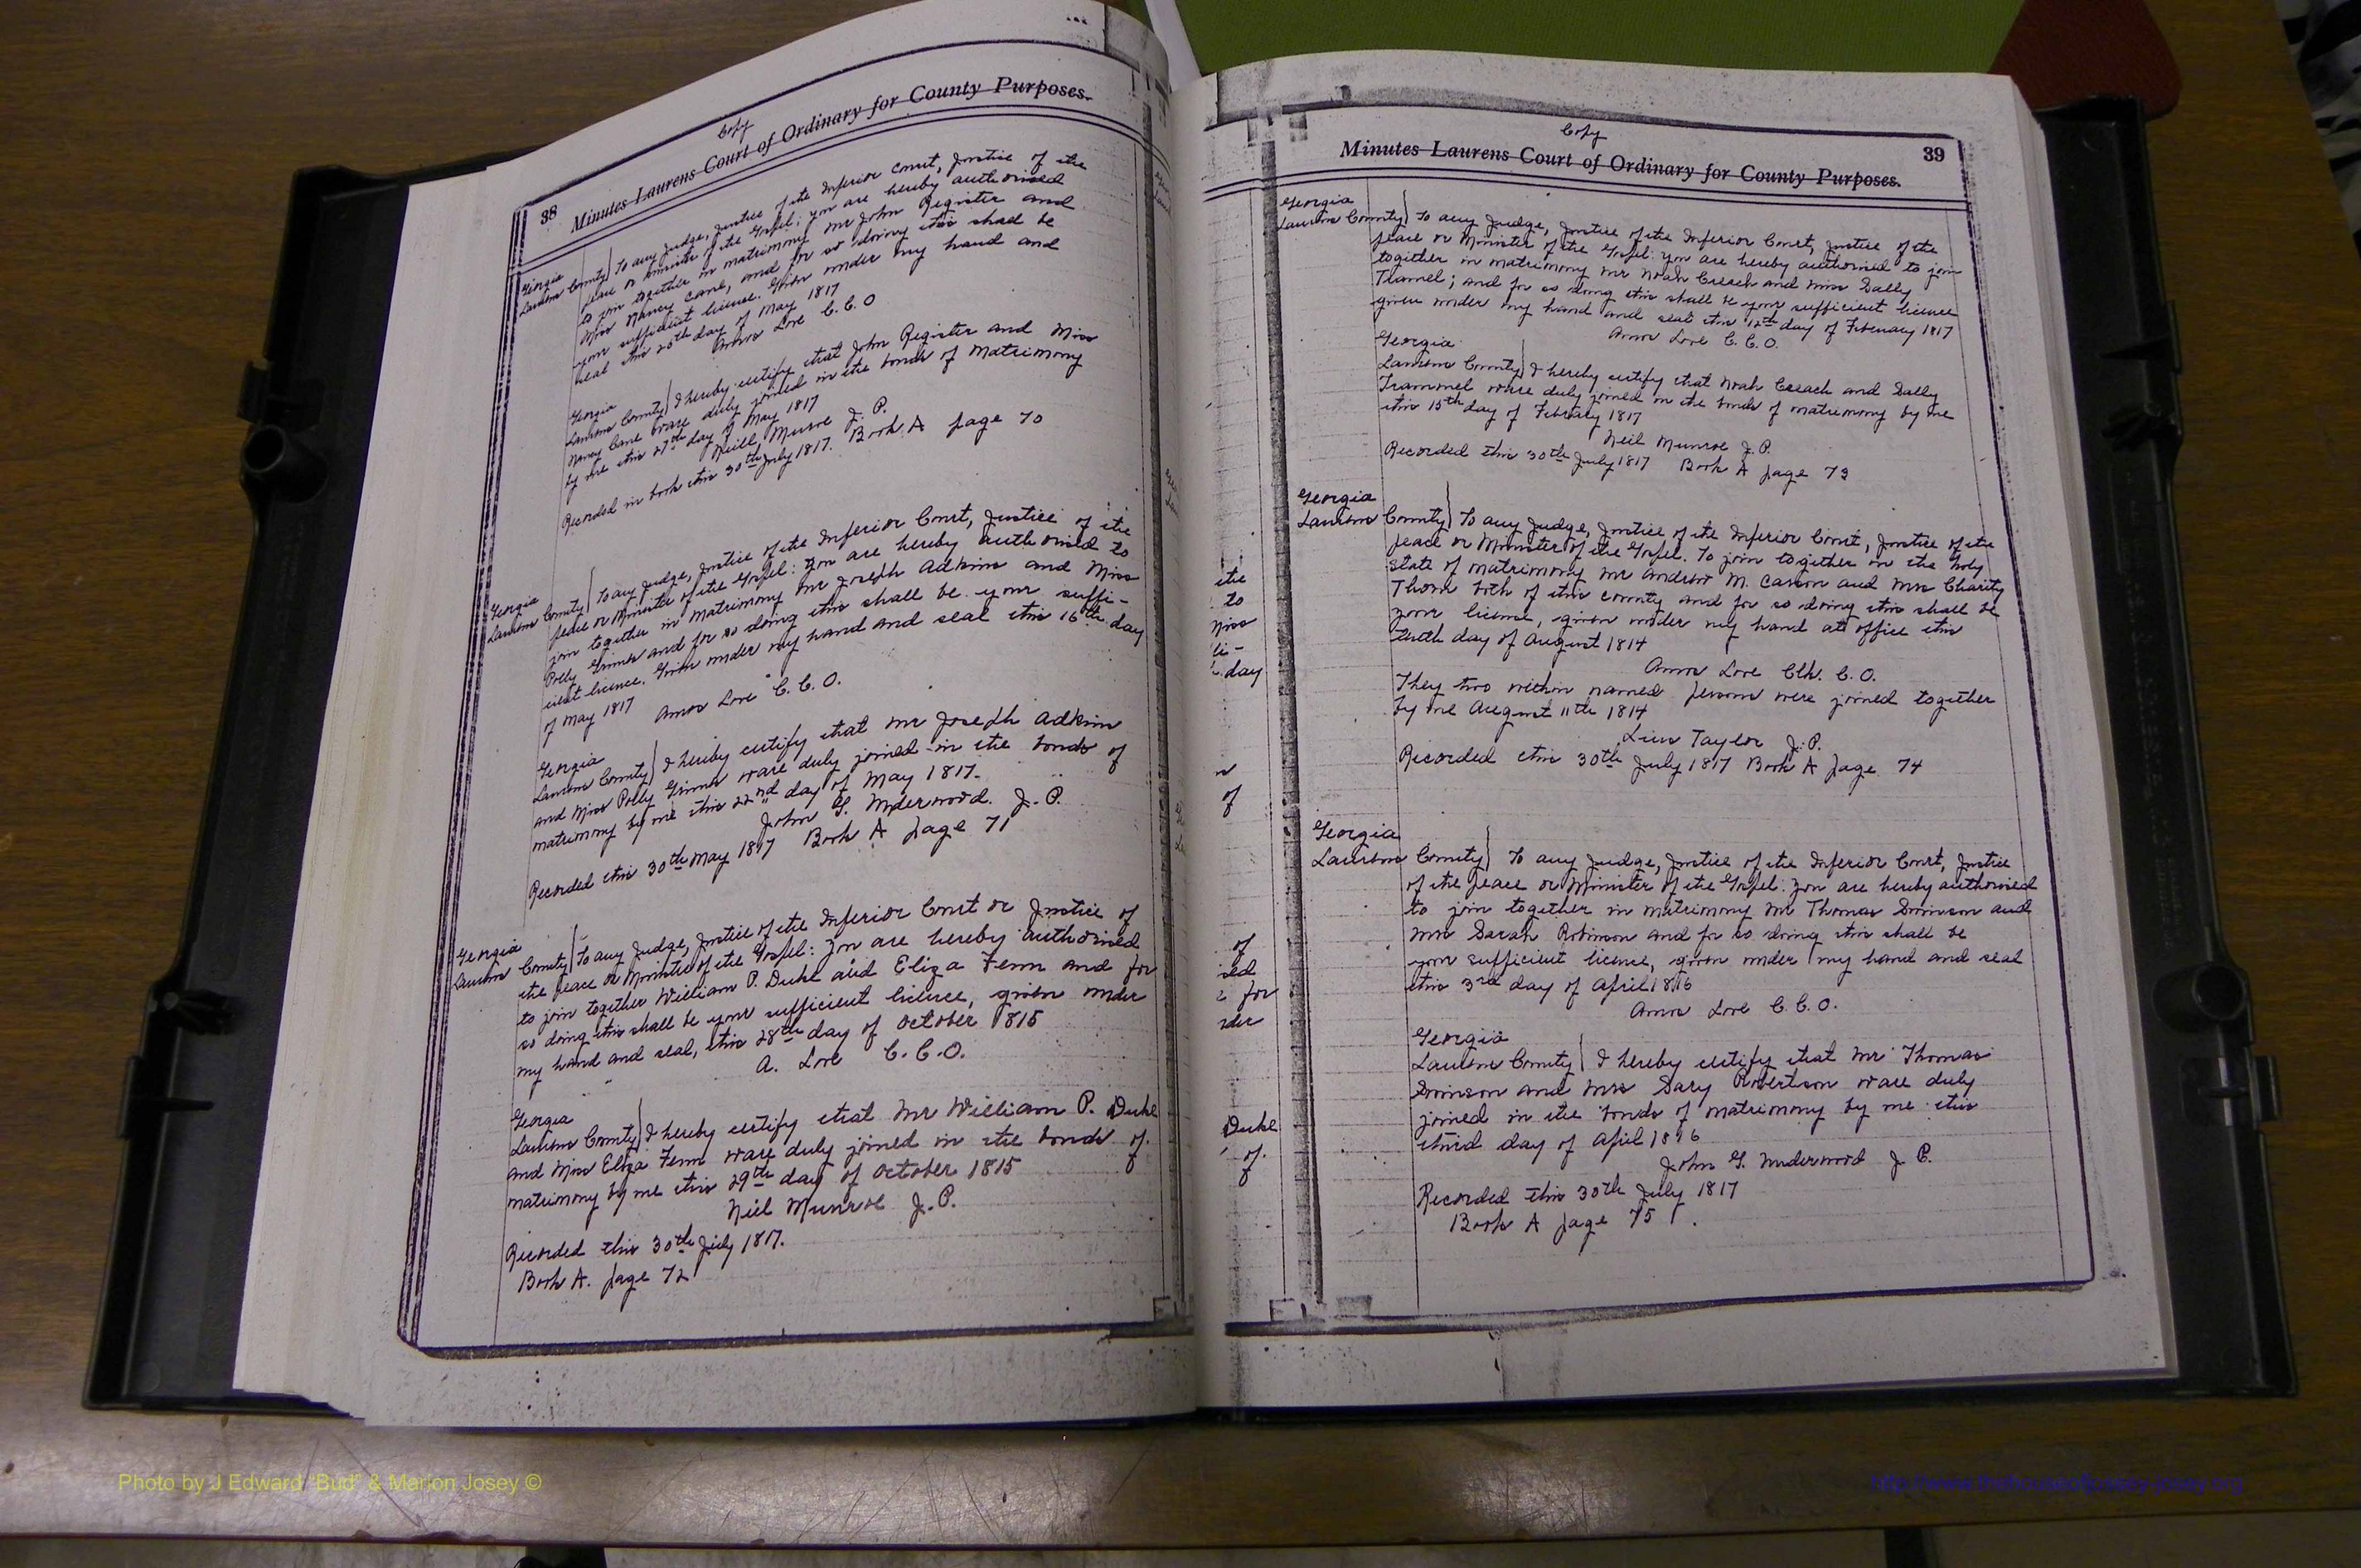 Copy
38 Minutes Laurens Court of Ordinary for County Purposes.
Georgia
Laurens County) To any Judge, Justice of the Inferior Court, Justice of the
peace or Minister of the Gospel: you are hereby authorised
to join together in matrimony Mr John Register and
Miss Nancy Cane, and for so doing this shall be
your sufficient licence. Given under my hand and
seal this 26th day of May 1817
Amos Love C. C. O
Georgia
Laurens County) I hereby certify that John Register and Miss
Nancy Cane ware duly joined in the bonds of Matrimony
by me this 27th day of May 1817
Neill Munroe J. P.
Recorded in book this 30th July 1817. Book A page 70
Georgia
Laurens County) To any Judge, Justice of the Inferior Court, Justice of the
peace or Minister of the Gospel: You are hereby authorised to
join together in matrimony Mr Joseph Adkins and Miss
Polly and for so doing this shall be your suffi-
cient licence. Given under my hand and seal this 16th day
of May 1817
Amos Love C. C. O.
Georgia
Laurens County) I hereby certify that Mr Joseph Adkins
and Miss Polly ware duly joined in the bonds of
matrimony by me this 22nd day of May 1817.
John G. Underwood. J. P.
Recorded this 30th May 1817 Book A page 71
Georgia
Laurens County) To any Judge, Justice of the Inferior Court or Justice of
the peace or Minister of the Gospel: You are hereby authorised
to join together William P. Duke and Eliza Fenn and for
so doing this shall be your sufficient licence, given under
my hand and seal, this 28th day of October 1815
A. Love C. C. O.
Georgia
Laurens County) I hereby certify that Mr William P. Duke
and Miss Eliza Fenn ware duly joined in the bonds of
matrimony by me this 29th day of October 1815
Niel Munroe J. P.
Recorded this 30th July 1817.
Book A. page 72
Copy
Minutes Laurens Court of Ordinary for County Purposes. 39
Georgia
Laurens County) To any Judge, Justice of the Inferior Court, Justice of the
peace or Minister of the Gospel: you are hereby authorised to join
together in matrimony Mr Noah Creach and Miss Sally
Tramel; and for so doing this shall be your sufficient licence
given under my hand and seal this 12th day of February 1817
Amos Love C. C. O.
Georgia
Laurens County) I hereby certify that Noah Creach and Sally
Trammel ware duly joined in the bonds of matrimony by me
this 13th day of February 1817
Neil Munroe J. P.
Recorded this 30th July 1817 Book A page 73
Georgia
Laurens County) To any Judge, Justice of the Inferior Court, Justice of the
peace or Minister of the Gospel. To join together in the Holy
state of matrimony Mr Andrew M. Carson and Mrs Charity
Thorn both of this county and for so doing this shall be
your license, given under my hand at office this
tenth day of August 1814
Amos Love Clk. C. O.
They two within named persons were joined together
by me August 11th 1814
Taylor J. P.
Recorded this 30th July 1817 Book A page 74
Georgia
Laurens County) To any Judge, Justice of the Inferior Court, Justice
of the Peace or Minister of the Gospel: You are hereby authorised
to join together in matrimony Mr Thomas Swinson and
Mrs Sarah Robinson and for so doing this shall be
your sufficient licence, given under my hand and seal
this 3rd day of April 1816
Amos Love C. C. O.
Georgia
Laurens County) I hereby certify that Mr Thomas
Swinson and Mrs Sary Robertson ware duly
joined in the bonds of matrimony by me this
third day of April 1816
John G. Underwood J. P.
Recorded this 30th July 1817
Book A page 75
the
to
Miss
fi-
day
n
of
of
sed
for
der
Duke
of.
Photo by J Edward "Bud" & Marion Josey ©
http://www.thehouseofjossey-josey.org